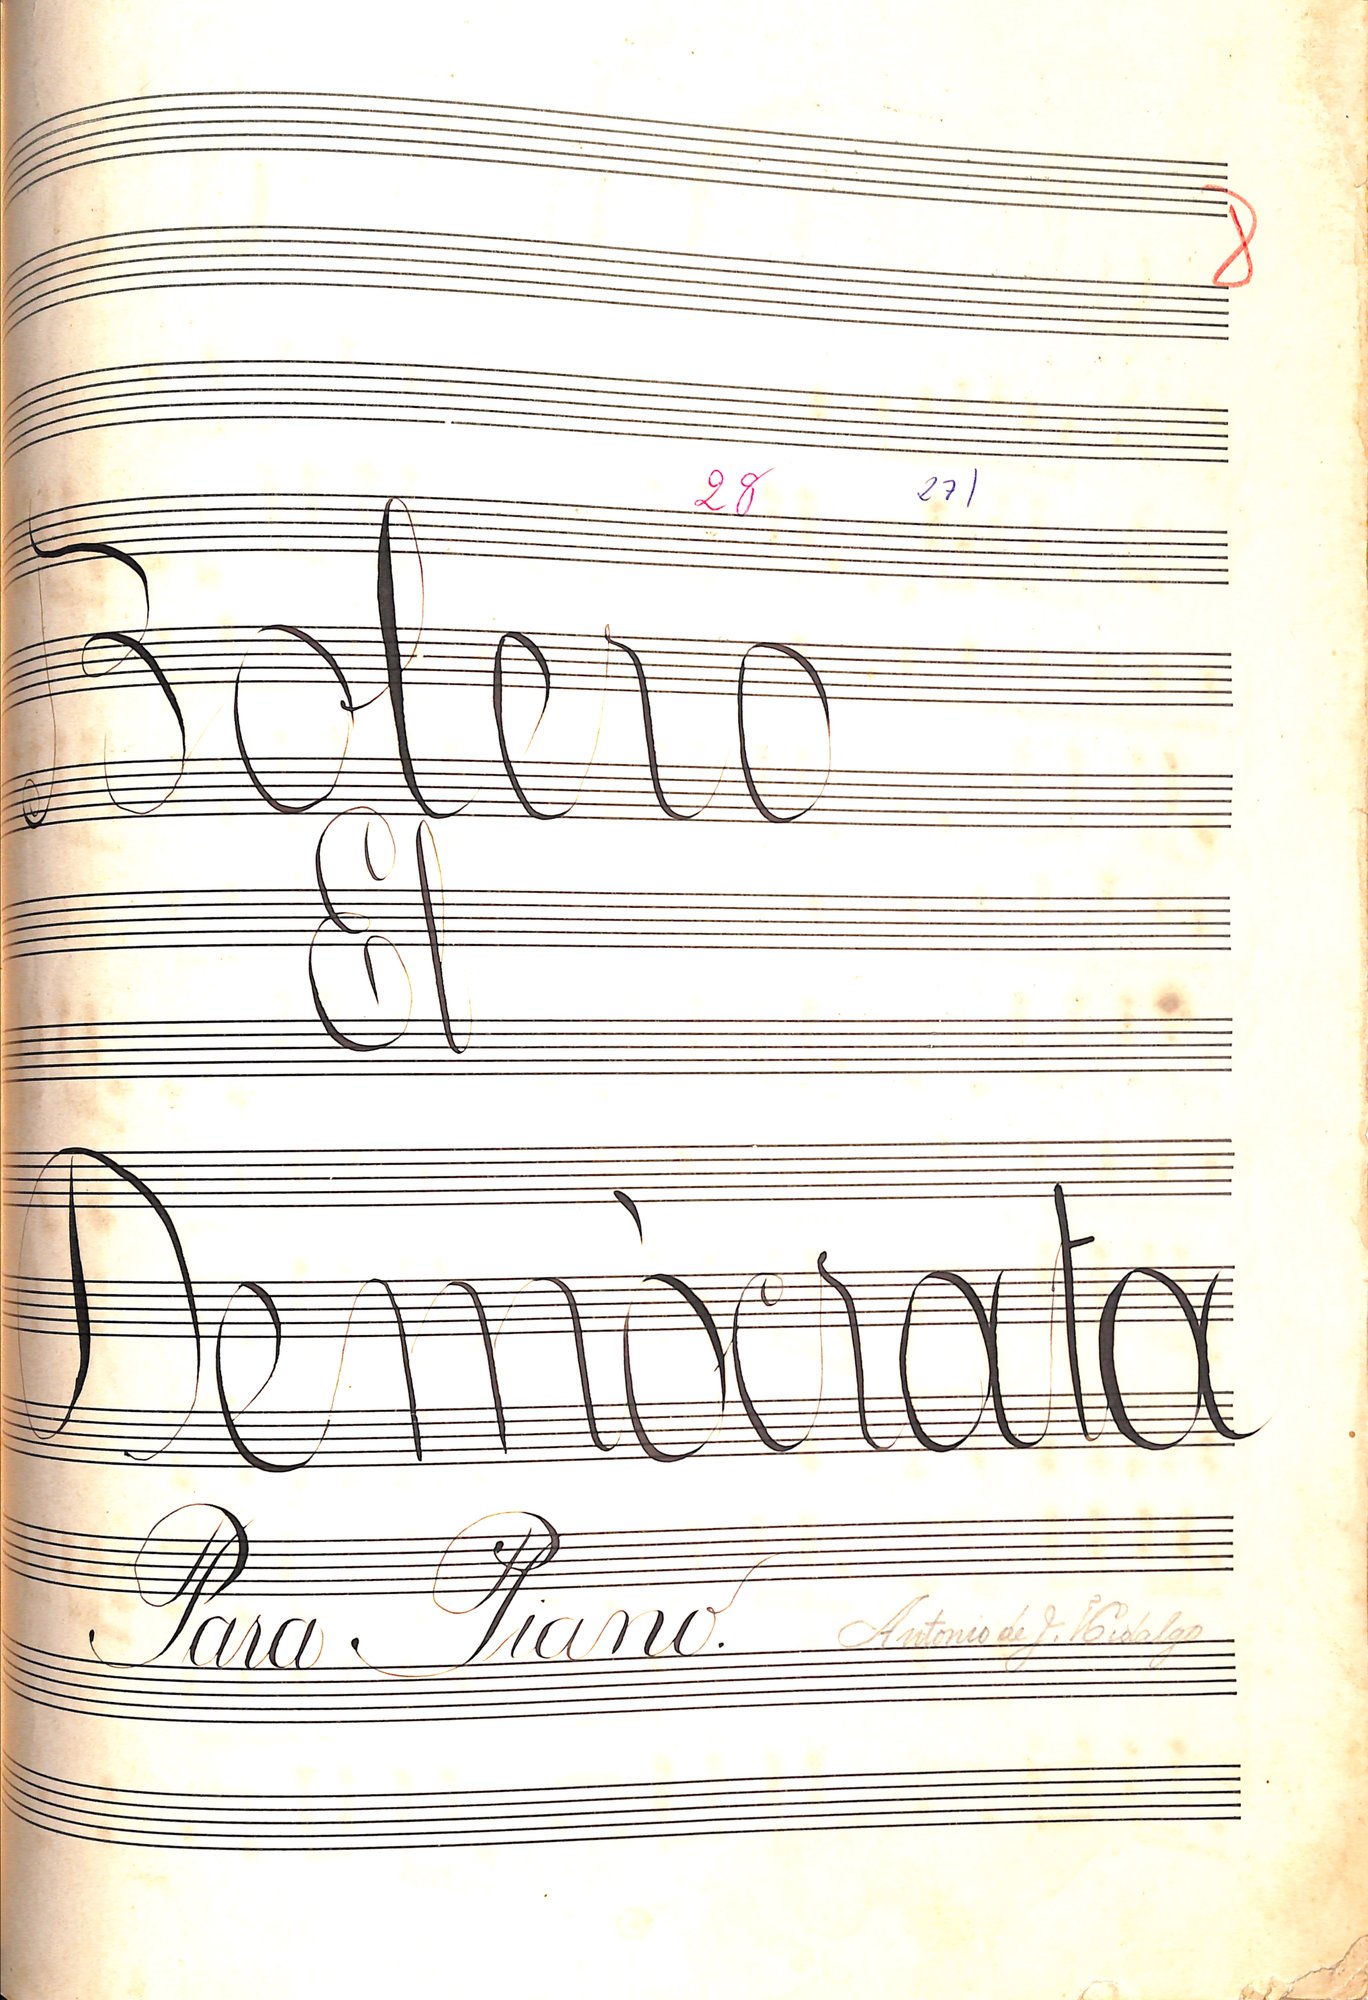 8
28 271
Bolero
El
Demócrata
Para Piano.
Antonio de J. Hidalgo